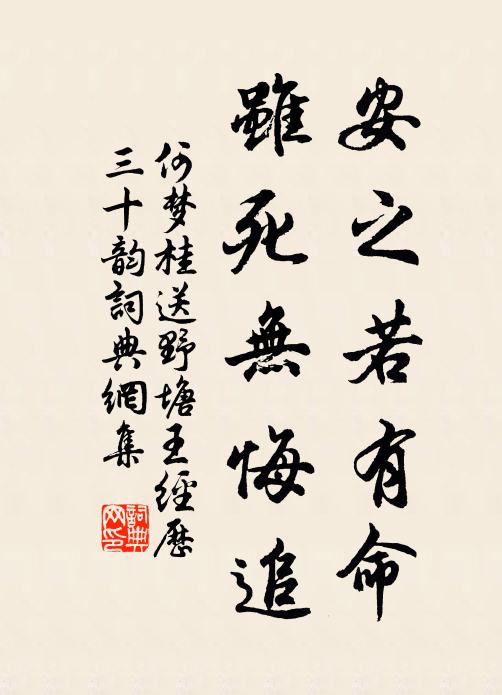 安之若有命
雖死無悔追
何梦桂送野塘王經歷
三十韵詞典網集
詞典
网印